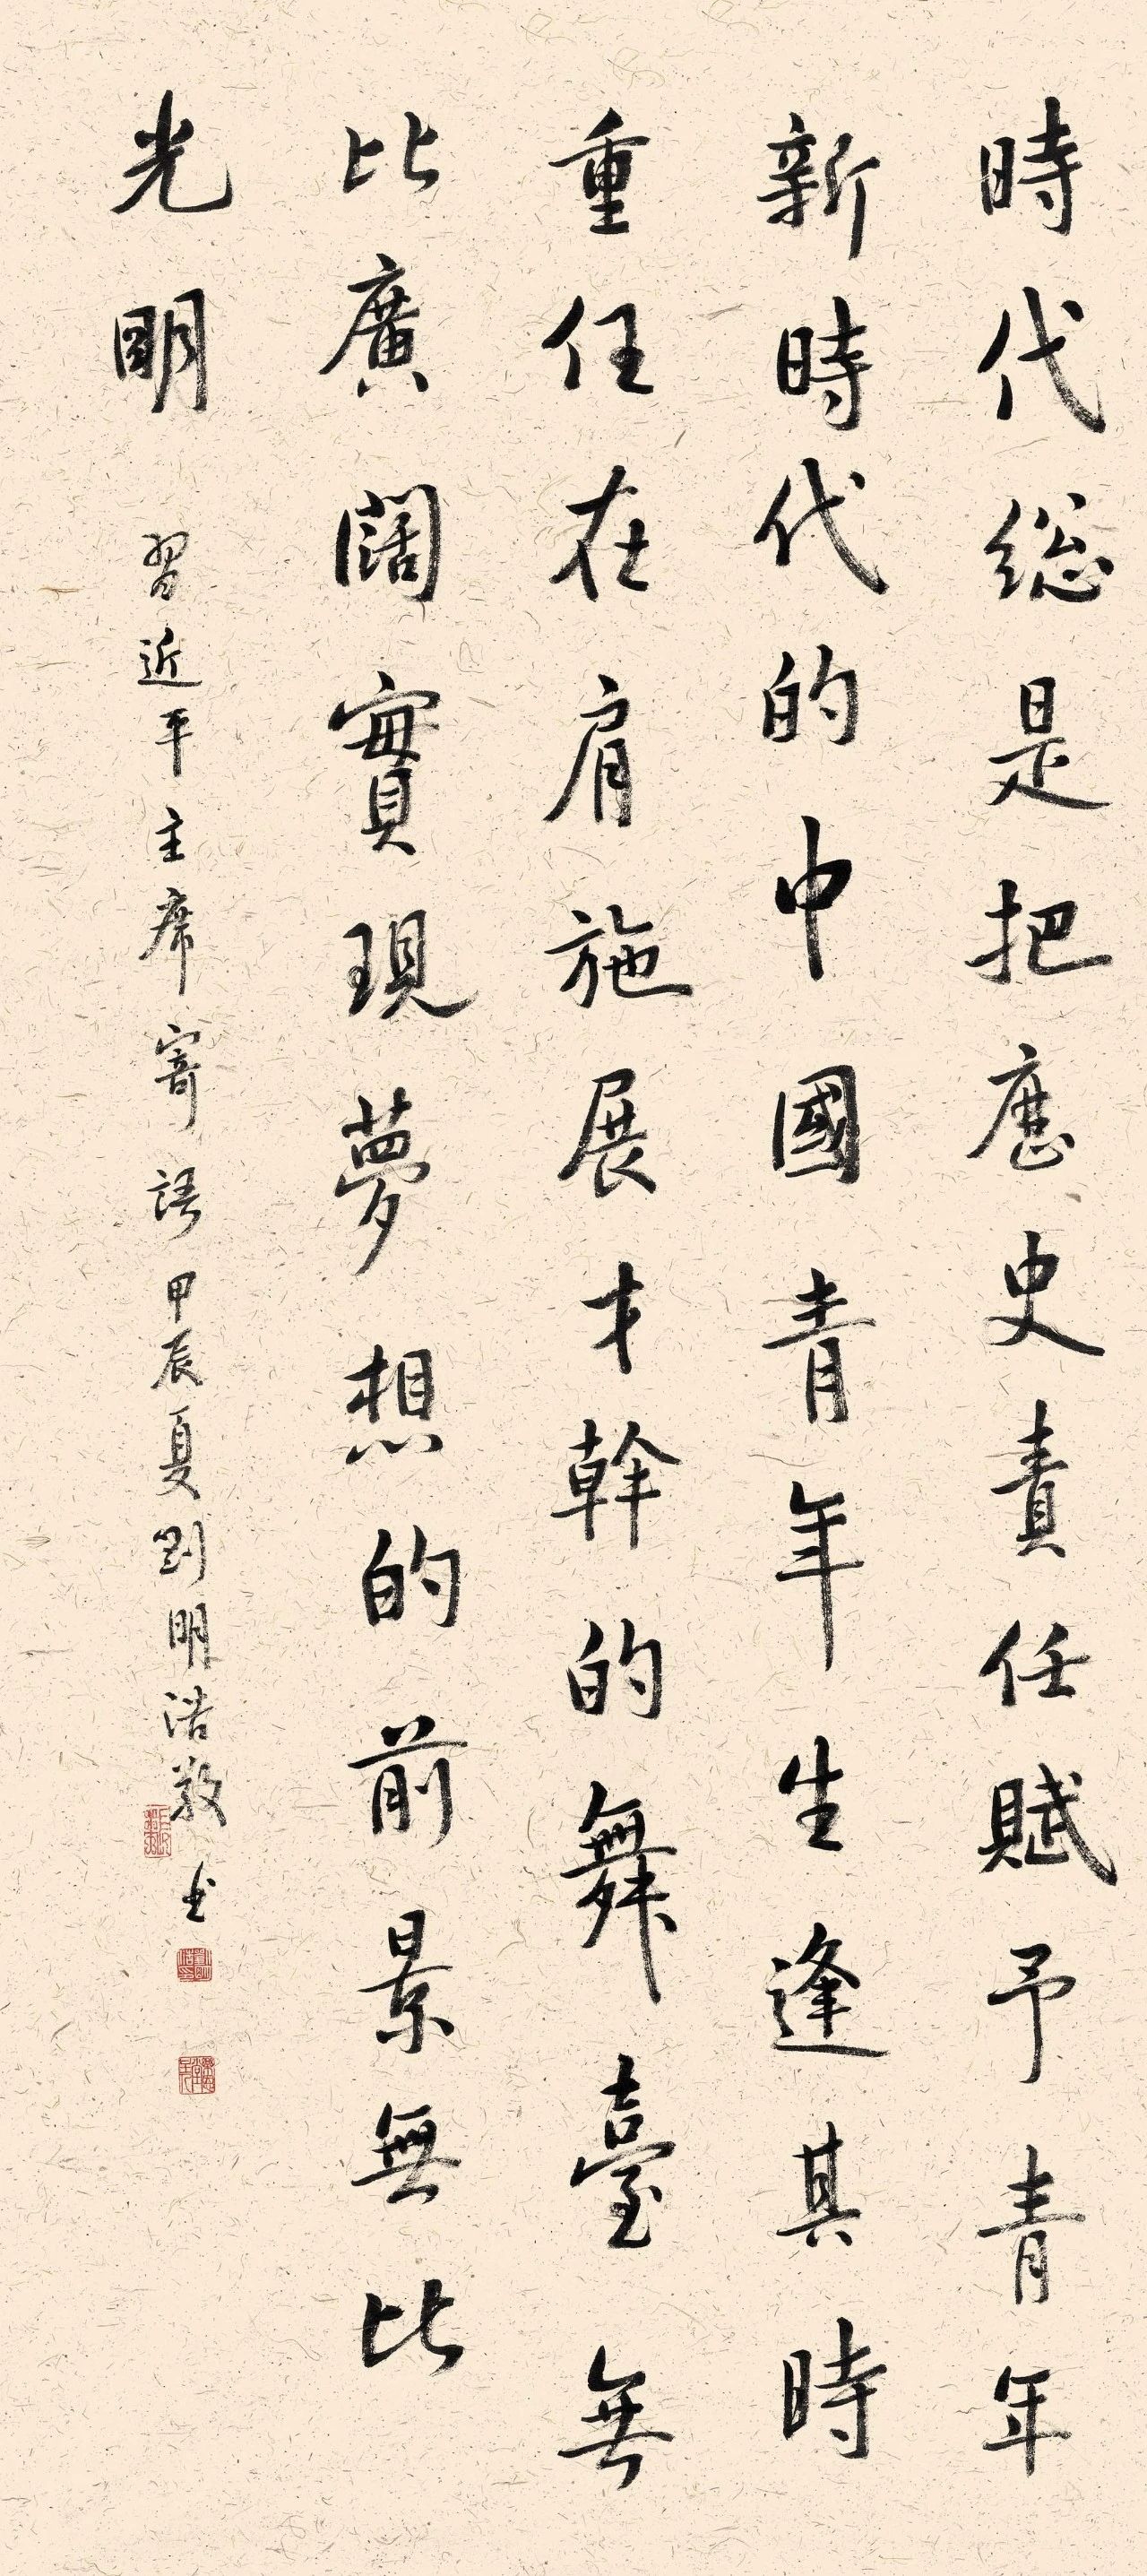 時代総是把歷史責任賦予青年
新時代的中國青年生逢其時
重任在肩施展才幹的舞臺無
比廣闊實現夢想的前景無比
光明
習近平主席寄語甲辰夏劉明浩敬书